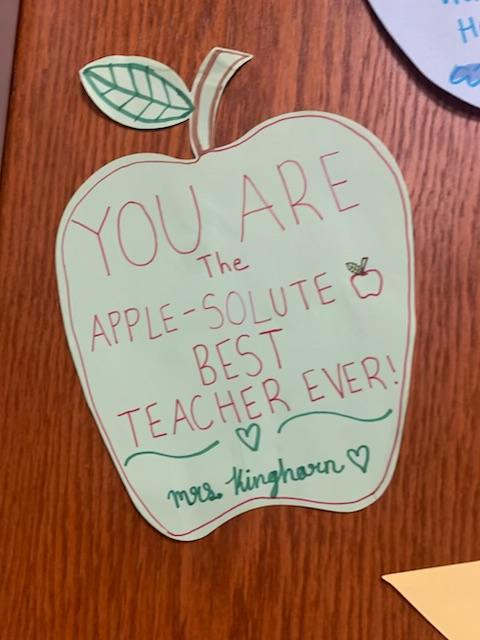 YOU ARE
The
APPLE-SOLUTE
BEST
TEACHER EVER!
mrs. Kinghorn